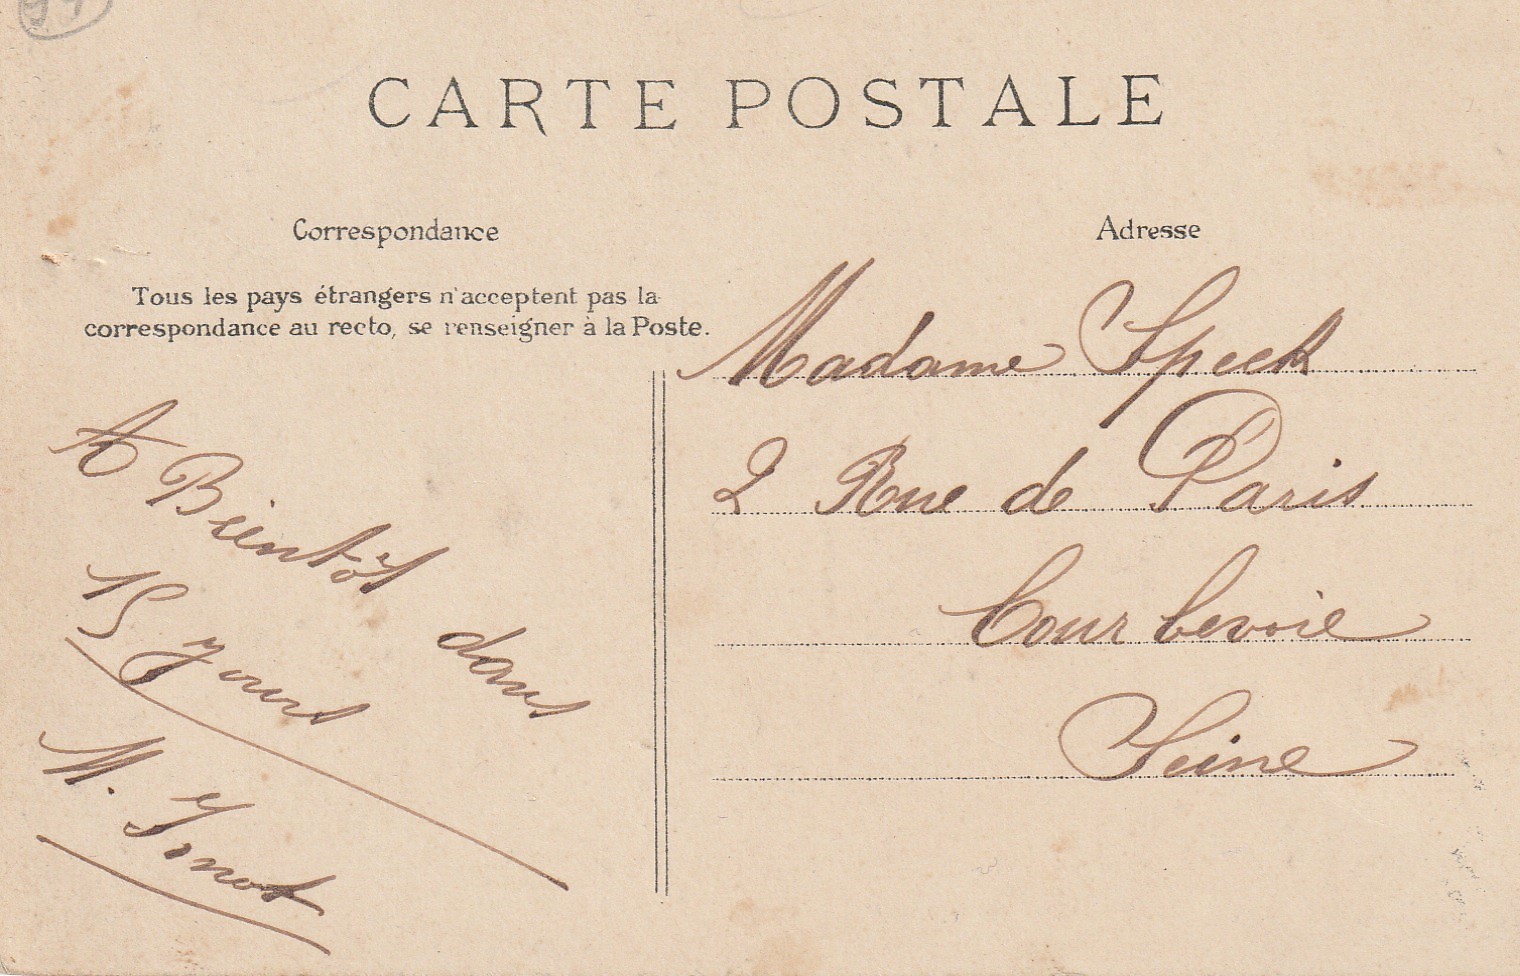 CARTE POSTALE
Correspondance
Adresse
Tous les pays étrangers n'acceptent pas la
correspondance au recto, se renseigner à la Poste.
Madame Speck
2 Rue de Paris
Courbevoie
Seine
A Bientôt dans
15 jours
M.